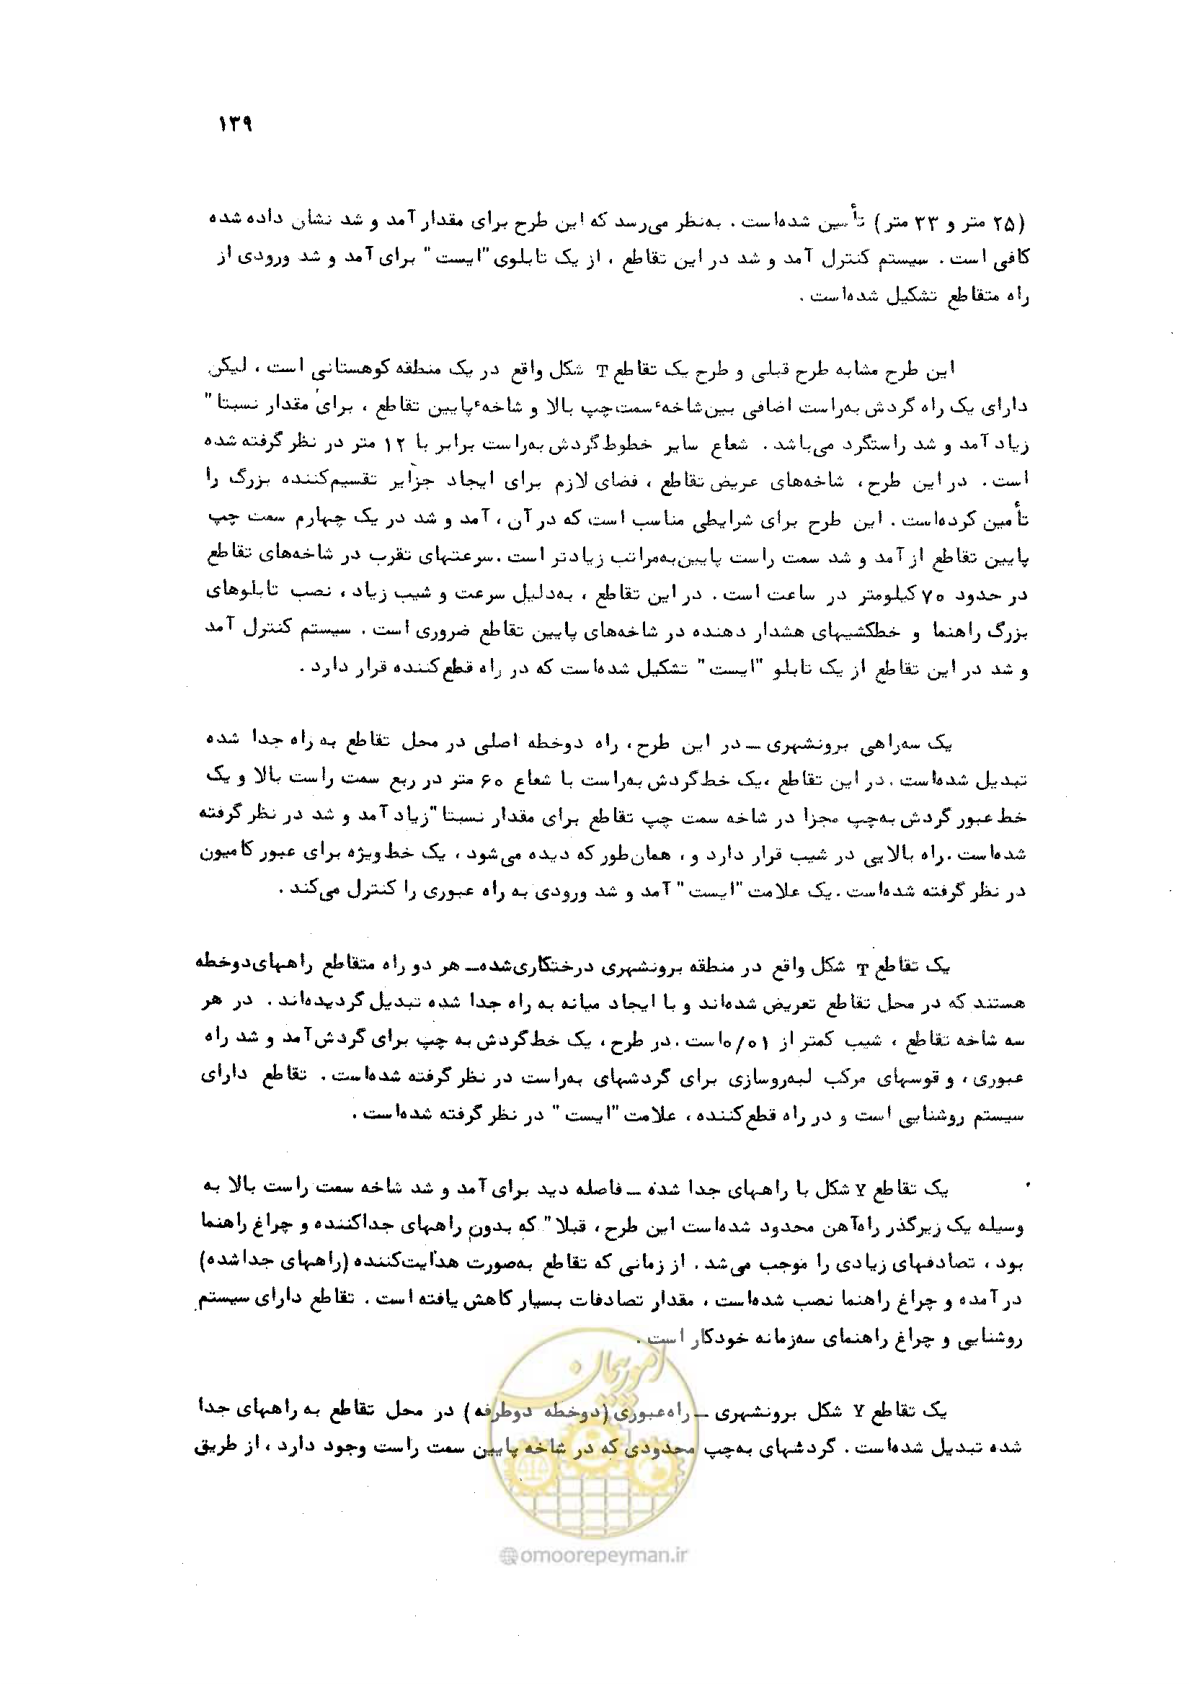 ۱۳۹
(۲۵ متر و ۳۳ متر) تأسین شده‌است. به‌نظر می‌رسد که این طرح برای مقدار آمد و شد نشان داده شده
کافی است. سیستم کنترل آمد و شد در این تقاطع، از یک تابلوی "ایست" برای آمد و شد ورودی از
راه متقاطع تشکیل شده‌است.
این طرح مشابه طرح قبلی و طرح یک تقاطع T شکل واقع در یک منطقه کوهستانی است، لیکن
دارای یک راه گردش به‌راست اضافی بین شاخهٔ سمت‌چپ بالا و شاخهٔ پایین تقاطع، برای مقدار نسبتا"
زیاد آمد و شد راستگرد می‌باشد. شعاع سایر خطوط گردش به‌راست برابر با ۱۲ متر در نظر گرفته شده
است. در این طرح، شاخه‌های عریض تقاطع، فضای لازم برای ایجاد جزایر تقسیم‌کننده بزرگ را
تأمین کرده‌است. این طرح برای شرایطی مناسب است که در آن، آمد و شد در یک چهارم سمت چپ
پایین تقاطع از آمد و شد سمت راست پایین به‌مراتب زیادتر است. سرعتهای تقرب در شاخه‌های تقاطع
در حدود ۷۰ کیلومتر در ساعت است. در این تقاطع، به‌دلیل سرعت و شیب زیاد، نصب تابلوهای
بزرگ راهنما و خطکشیهای هشدار دهنده در شاخه‌های پایین تقاطع ضروری است. سیستم کنترل آمد
و شد در این تقاطع از یک تابلو "ایست" تشکیل شده‌است که در راه قطع‌کننده قرار دارد.
یک سه‌راهی برونشهری ــ در این طرح، راه دوخطه اصلی در محل تقاطع به راه جدا شده
تبدیل شده‌است. در این تقاطع، یک خط گردش به‌راست با شعاع ۶۰ متر در ربع سمت راست بالا و یک
خط عبور گردش به‌چپ مجزا در شاخه سمت چپ تقاطع برای مقدار نسبتا" زیاد آمد و شد در نظر گرفته
شده‌است. راه بالایی در شیب قرار دارد و، همان‌طور که دیده می‌شود، یک خط ویژه برای عبور کامیون
در نظر گرفته شده‌است. یک علامت "ایست" آمد و شد ورودی به راه عبوری را کنترل می‌کند.
یک تقاطع T شکل واقع در منطقه برونشهری درختکاری‌شده ــ هر دو راه متقاطع راههای دوخطه
هستند که در محل تقاطع تعریض شده‌اند و با ایجاد میانه به راه جدا شده تبدیل گردیده‌اند. در هر
سه شاخه تقاطع، شیب کمتر از ۰/۰۱ است. در طرح، یک خط گردش به چپ برای گردش آمد و شد راه
عبوری، و قوسهای مرکب لبه‌روسازی برای گردشهای به‌راست در نظر گرفته شده‌است. تقاطع دارای
سیستم روشنایی است و در راه قطع‌کننده، علامت "ایست" در نظر گرفته شده‌است.
یک تقاطع Y شکل با راههای جدا شده ــ فاصله دید برای آمد و شد شاخه سمت راست بالا به
وسیله یک زیرگذر راه‌آهن محدود شده‌است این طرح، قبلا" که بدون راههای جداکننده و چراغ راهنما
بود، تصادفهای زیادی را موجب می‌شد. از زمانی که تقاطع به‌صورت هدایت‌کننده (راههای جداشده)
در آمده و چراغ راهنما نصب شده‌است، مقدار تصادفات بسیار کاهش یافته است. تقاطع دارای سیستم
روشنایی و چراغ راهنمای سه‌زمانه خودکار است.
یک تقاطع Y شکل برونشهری ــ راه‌عبوری (دوخطه دوطرفه) در محل تقاطع به راههای جدا
شده تبدیل شده‌است. گردشهای به‌چپ محدودی که در شاخه پایین سمت راست وجود دارد، از طریق
امور پیمان
@omoorepeyman.ir